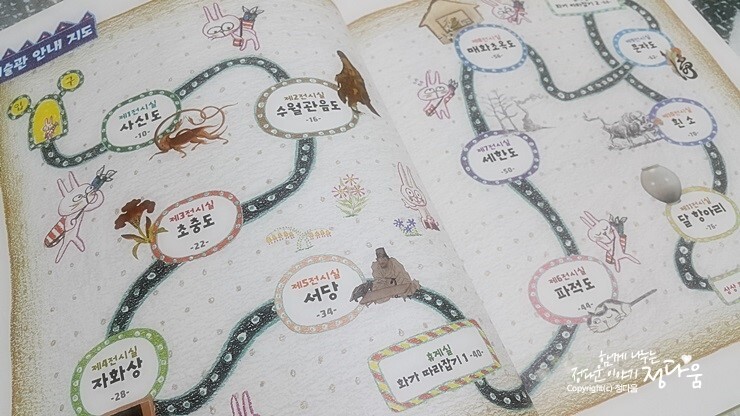 술관 안내 지도
입
구
제1전시실
사신도
-10-
제2전시실
수월관음도
-16-
제3전시실
초충도
-22-
제4전시실
자화상
-28-
제5전시실
서당
-34-
휴게실
화가 따라잡기 1 -40-
제6전시실
파적도
-44-
제7전시실
세한도
-50-
제8전시실
매화초옥도
문자도
흰 소
달 항아리
함께 나누는
정다운 이야기 정다움
Copyright(c) 정다움